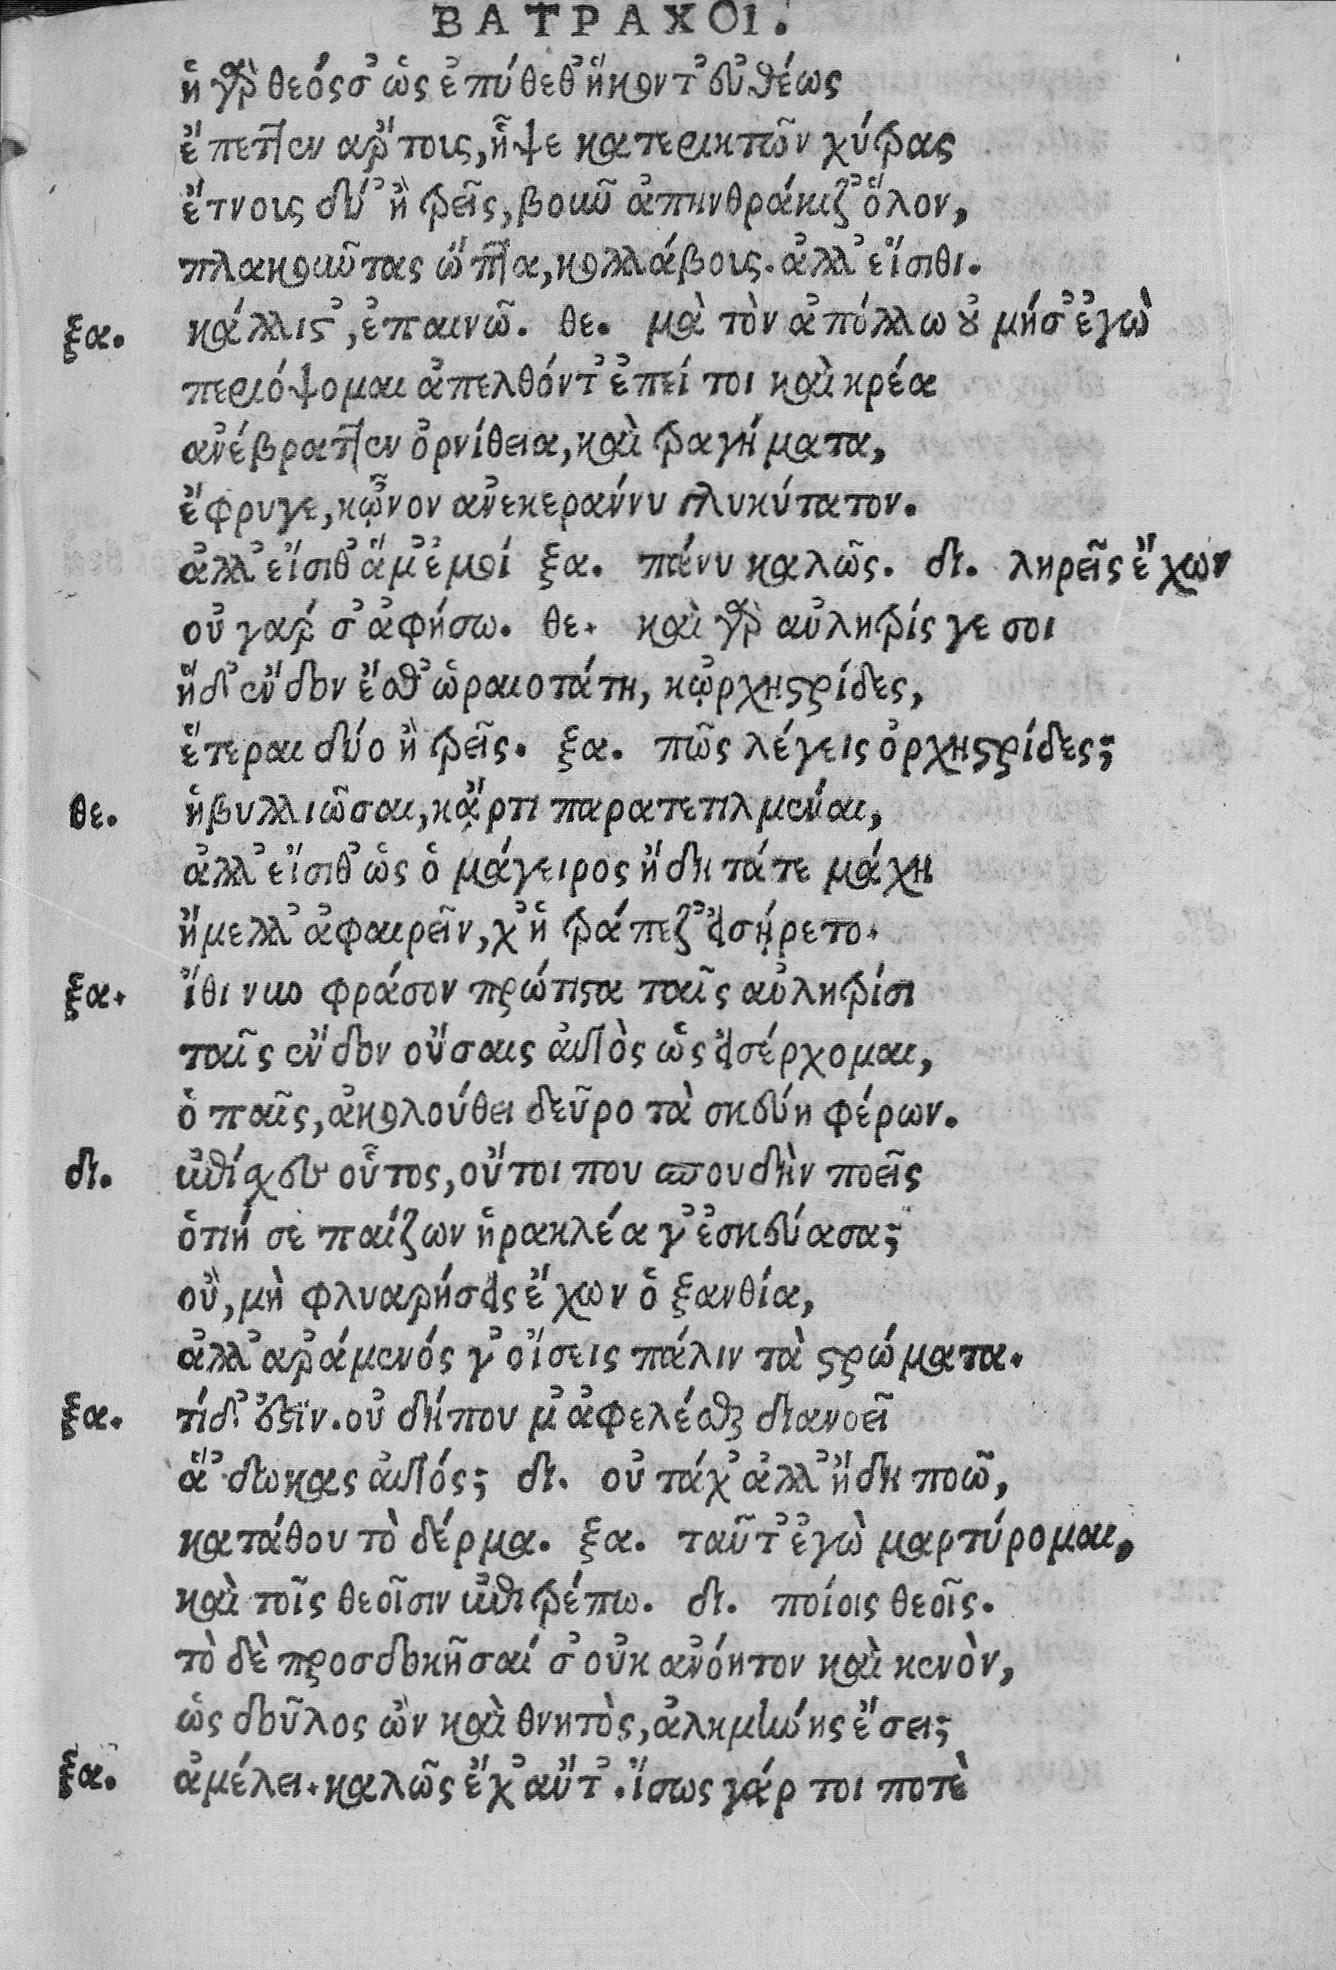 ΒΑΤΡΑΧΟΙ.
ἡ γὰρ θεός σ' ὡς ἐπύθεθ' ἥκοντ' εὐθέως
ἔπεττεν ἄρτους, ἧψε κατερικτῶν χύτρας
ἔτνους δύ' ἢ τρεῖς, βοῦν ἀπηνθράκιζ' ὅλον,
πλακοῦντας ὤπτα, κολλάβους. ἀλλ' εἴσιθι.
ξα. κάλλιστ', ἐπαινῶ. θε. μὰ τὸν ἀπόλλω οὐ μήσ' ἐγὼ
περιόψομαι ἀπελθόντ' ἐπεί τοι καὶ κρέα
ἀνέβραττεν ὀρνίθεια, καὶ τραγήματα,
ἔφρυγε, κᾦνον ἀνεκεράννυ γλυκύτατον.
ἀλλ' εἴσιθ' ἅμ' ἐμοί ξα. πάνυ καλῶς. δι. ληρεῖς ἔχων
οὐ γάρ σ' ἀφήσω. θε. καὶ γὰρ αὐλητρίς γε σοι
ἥδ' ἔνδον ἔσθ' ὡραιοτάτη, κᾠρχηστρίδες,
ἕτεραι δύο ἢ τρεῖς. ξα. πῶς λέγεις ὀρχηστρίδες;
θε. ἡβυλλιῶσαι, κᾄρτι παρατετιλμέναι,
ἀλλ' εἴσιθ' ὡς ὁ μάγειρος ἤδη τάτε μάχη
ἤμελλ' ἀφαιρεῖν, χ' ἡ τράπεζ' εἰσῄρετο.
ξα. ἴθι νυν φράσον πρώτιστα ταῖς αὐλητρίσι
ταῖς ἔνδον οὔσαις αὐτὸς ὡς εἰσέρχομαι,
ὁ παῖς, ἀκολούθει δεῦρο τὰ σκεύη φέρων.
δι. ἐπίσχες οὗτος, οὔτοι που σπουδὴν ποεῖς
ὁτιή σε παίζων ἡρακλέα γ' ἐσκεύασα;
οὒ, μὴ φλυαρήσεις ἔχων ὁ ξανθία,
ἀλλ' ἀράμενός γ' οἴσεις πάλιν τὰ στρώματα.
ξα. τίδ' ἐστίν. οὐ δήπου μ' ἀφελέσθαι διανοεῖ
ἃ 'δωκας αὐτός; δι. οὐ τάχ' ἀλλ' ἤδη ποῶ,
κατάθου τὸ δέρμα. ξα. ταῦτ' ἐγὼ μαρτύρομαι,
καὶ τοῖς θεοῖσιν ἐπιτρέπω. δι. ποίοις θεοῖς.
τὸ δὲ προσδοκῆσαί σ' οὐκ ἀνόητον καὶ κενὸν,
ὡς δοῦλος ὢν καὶ θνητὸς, ἀλκμήνης ἔσει;
ξα. ἀμέλει. καλῶς ἔχ' αὔτ'. ἴσως γάρ τοι ποτὲ